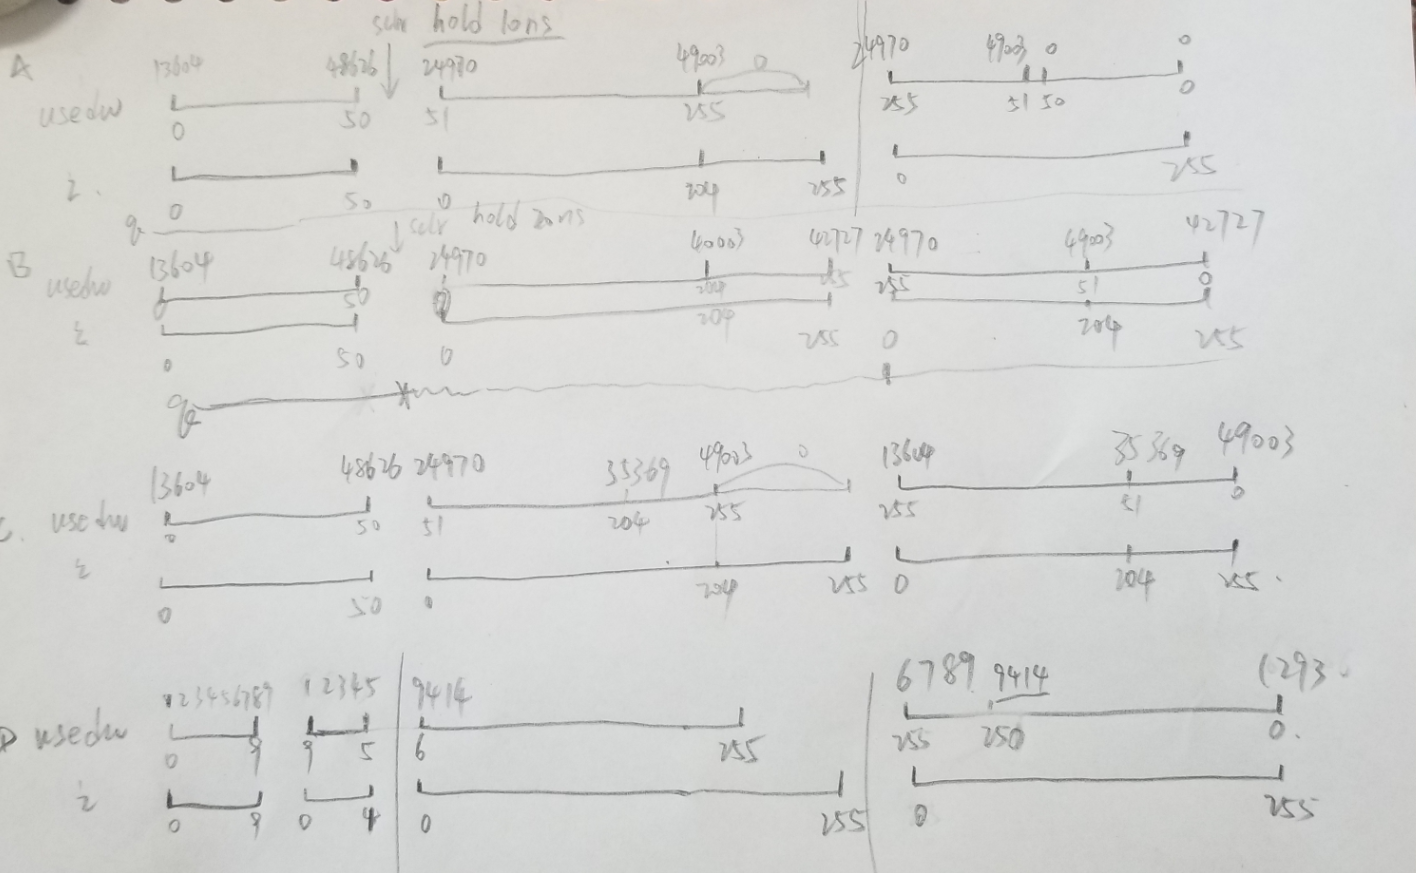 sclr hold 10ns
A 13604 48626 24970 49003 0 24970 49003 0 0
usedw 0 50 51 255 255 51 50 0
i. 0 50 0 204 255 0 255
q
sclr hold 20ns
B 13604 48626 24970 40003 42727 24970 49003 42727
usedw 0 50 0 204 255 255 51 0
i 0 50 0 204 255 0 204 255
q
13604 48626 24970 35369 49003 0 13604 35369 49003
C. usedw 0 50 51 204 255 255 51 0
i 0 50 0 204 255 0 204 255.
123456789 12345 9414 6789 9414 1293
D usedw 0 9 9 5 6 255 255 250 0.
i 0 9 0 4 0 255 0 255